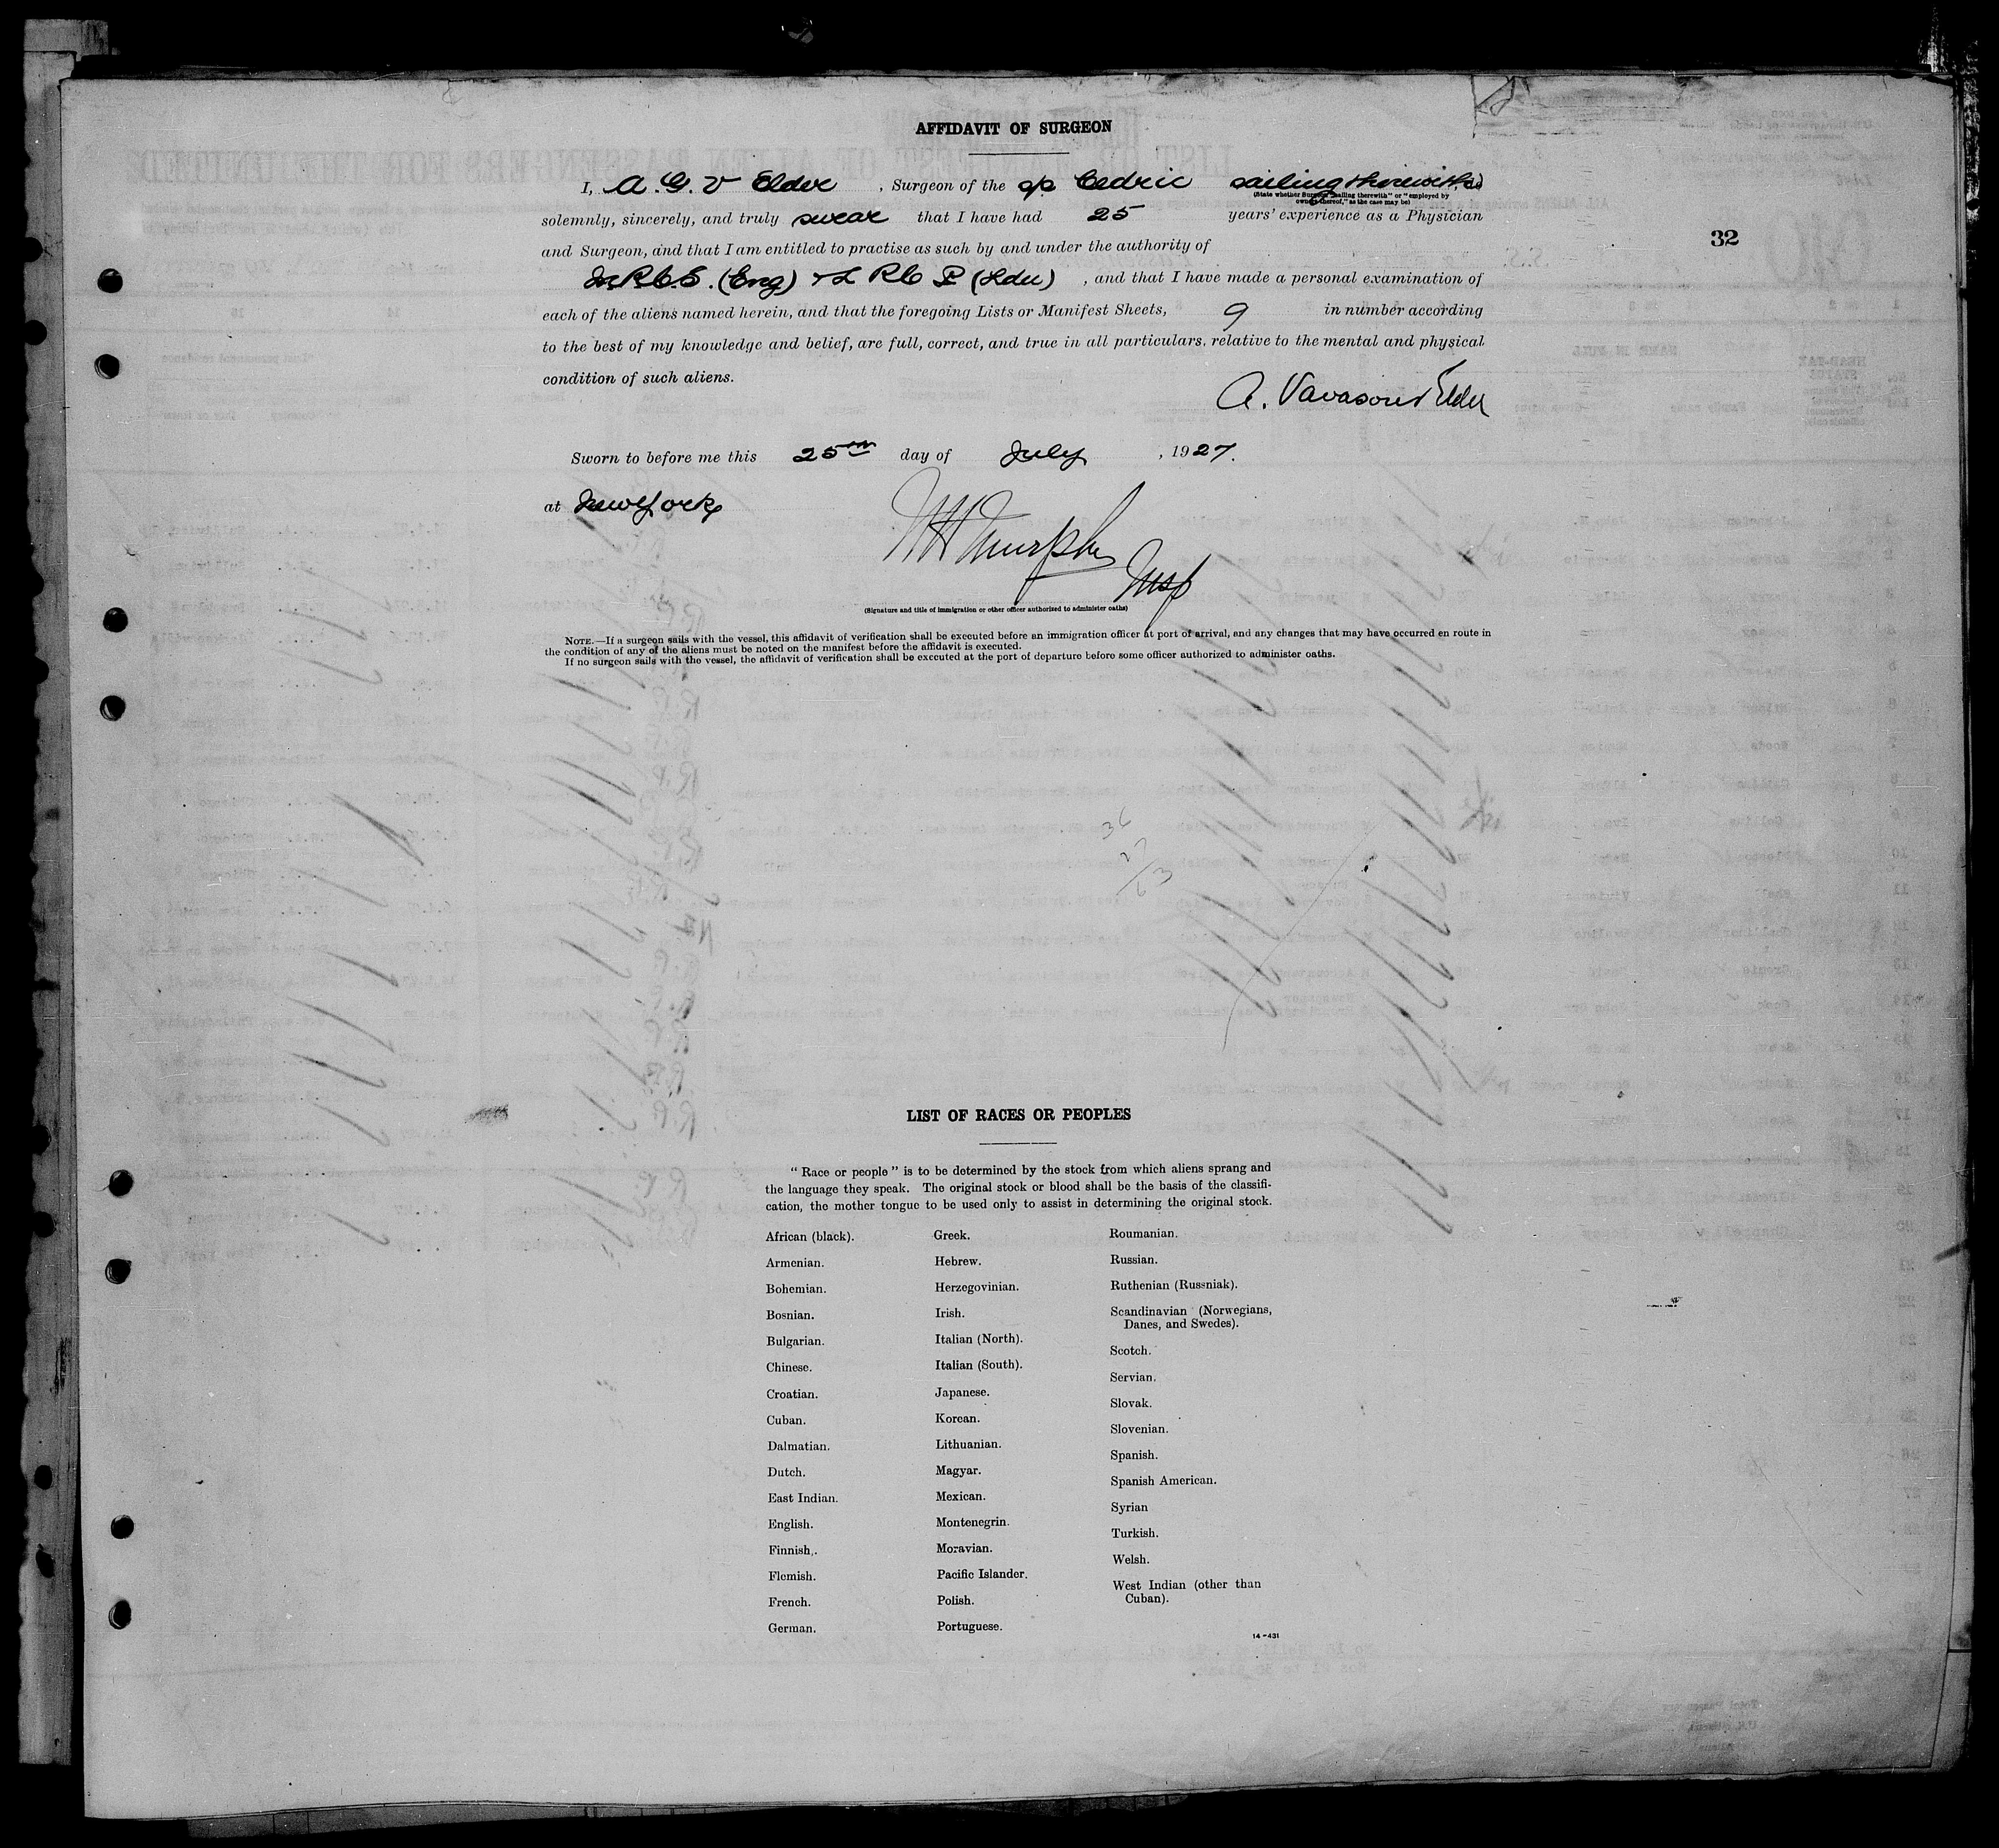 AFFIDAVIT OF SURGEON
I, A. G. V Elder, Surgeon of the s/s Cedric sailing therewith do
(State whether Surgeon "sailing therewith" or "employed by
owners thereof," as the case may be)
solemnly, sincerely, and truly swear that I have had 25 years' experience as a Physician
and Surgeon, and that I am entitled to practise as such by and under the authority of
32
M R C S. (Eng) & L R C P (Edu), and that I have made a personal examination of
each of the aliens named herein, and that the foregoing Lists or Manifest Sheets, 9 in number according
to the best of my knowledge and belief, are full, correct, and true in all particulars, relative to the mental and physical
condition of such aliens.
A. Vavasour Elder
Sworn to before me this 25th day of July, 1927.
at New York
Murphy
Insp
(Signature and title of immigration or other officer authorized to administer oaths)
NOTE.—If a surgeon sails with the vessel, this affidavit of verification shall be executed before an immigration officer at port of arrival, and any changes that may have occurred en route in
the condition of any of the aliens must be noted on the manifest before the affidavit is executed.
If no surgeon sails with the vessel, the affidavit of verification shall be executed at the port of departure before some officer authorized to administer oaths.
36
27
63
LIST OF RACES OR PEOPLES
"Race or people" is to be determined by the stock from which aliens sprang and
the language they speak. The original stock or blood shall be the basis of the classifi-
cation, the mother tongue to be used only to assist in determining the original stock.
African (black).
Armenian.
Bohemian.
Bosnian.
Bulgarian.
Chinese.
Croatian.
Cuban.
Dalmatian.
Dutch.
East Indian.
English.
Finnish.
Flemish.
French.
German.
Greek.
Hebrew.
Herzegovinian.
Irish.
Italian (North).
Italian (South).
Japanese.
Korean.
Lithuanian.
Magyar.
Mexican.
Montenegrin.
Moravian.
Pacific Islander.
Polish.
Portuguese.
Roumanian.
Russian.
Ruthenian (Russniak).
Scandinavian (Norwegians,
Danes, and Swedes).
Scotch.
Servian.
Slovak.
Slovenian.
Spanish.
Spanish American.
Syrian
Turkish.
Welsh.
West Indian (other than
Cuban).
14-431